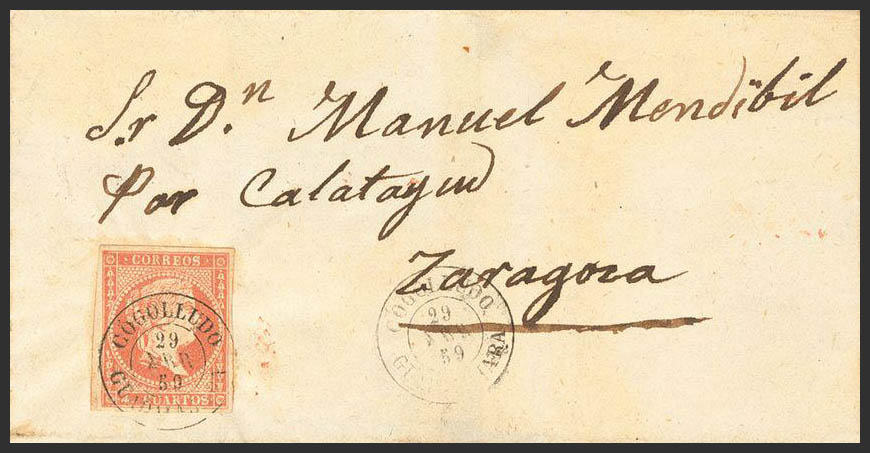 Sr Dn. Manuel Mendibil
Por Calatayud
Zaragoza
CORREOS
COGOLLUDO
29
ABR
59
CUARTOS
COGOLLUDO.
29
59